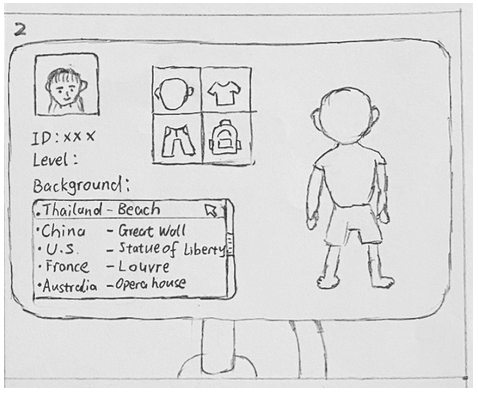 2
ID: xxx
Level:
Background:
• Thailand - Beach
• China - Great Wall
• U.S. - Statue of Liberty
• France - Louvre
• Australia - Opera house